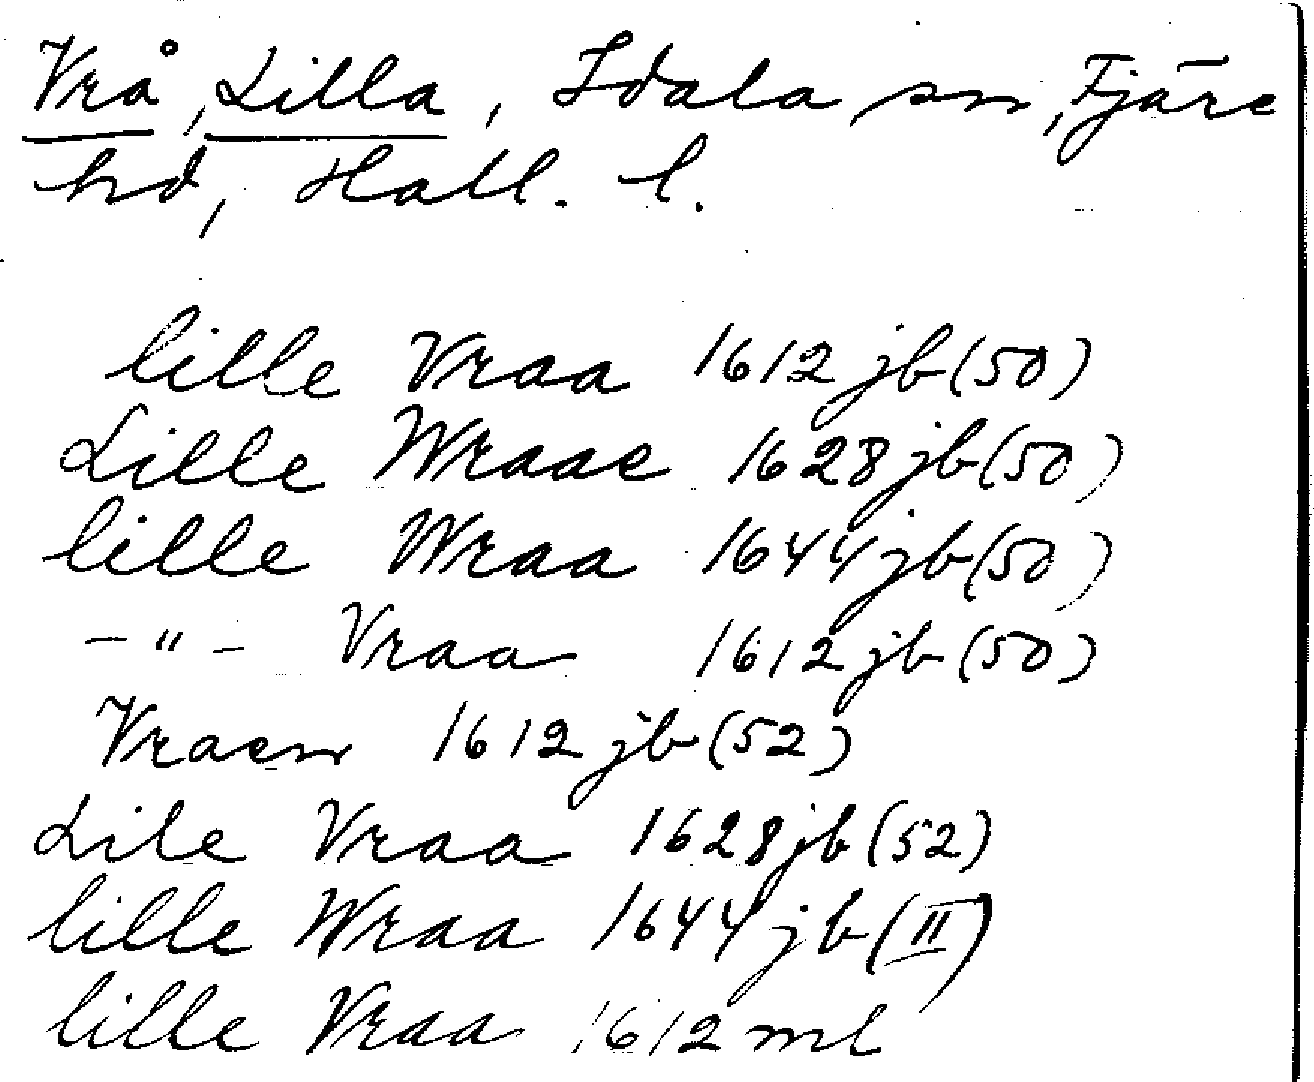 Vrå, Lilla, Idala sn, Fjäre
hd, Hall. l.
lille Vraa 1612 jb (50)
Lille Wraae 1628 jb (50)
lille Wraa 1644 jb (50)
-"- Vraa 1612 jb (50)
Vraen 1612 jb (52)
Lile Vraa 1628 jb (52)
lille Wraa 1644 jb (II)
lille Vraa 1612 ml